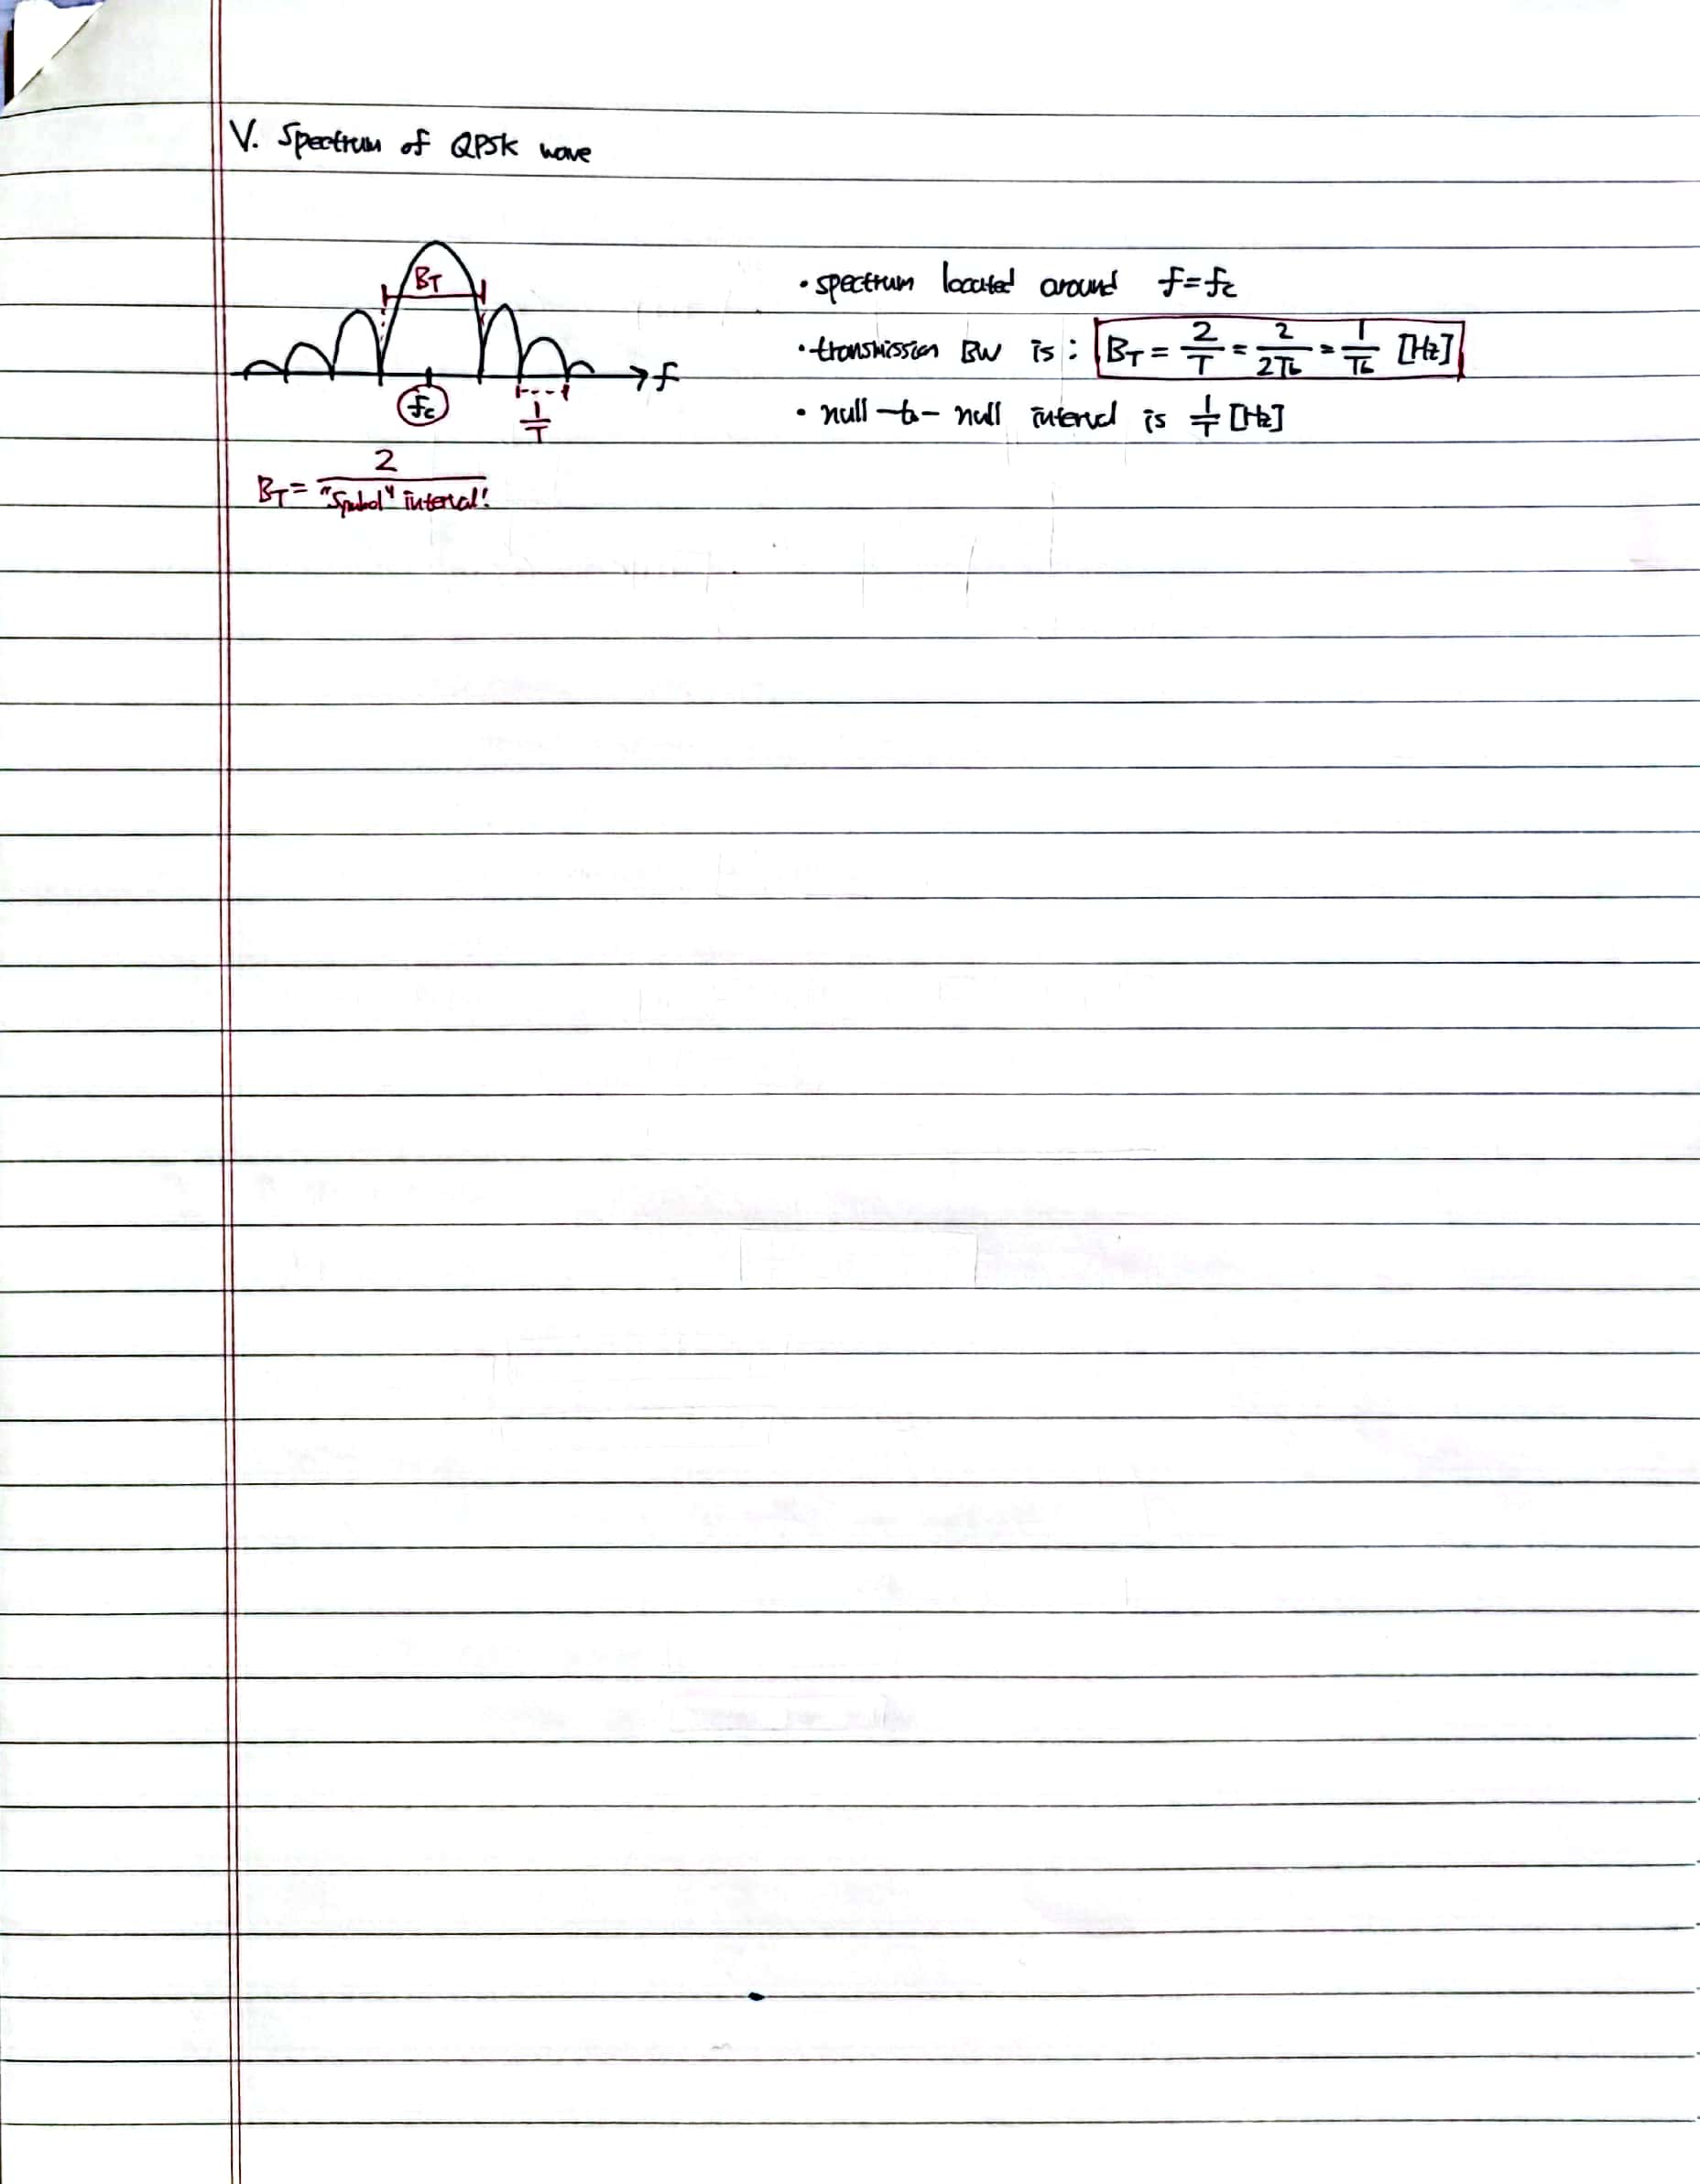 V. Spectrum of QPSK wave
BT
f
fc
1/T
BT = 2/"Symbol" interval!
• spectrum located around f=fc
• transmission BW is : BT = 2/T = 2/2Tb = 1/Tb [Hz]
• null-to-null interval is 1/T [Hz]